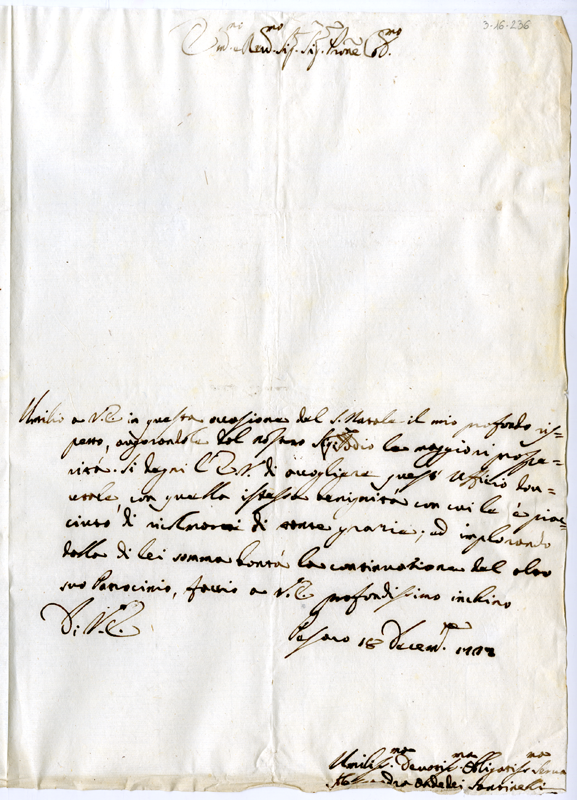 3-16-236
Em.mo e Rev.mo Sig.r Sig.r Prone Col.mo
Umilio a V.E. in questa occasione del S. Natale il mio profondo ris-
petto, augurandole dal nostro Sig.r Iddio le maggiori prospe-
rità. Si degni l'E.V. di accogliere questo Uffizio dov-
utole, con quella istessa benignità con cui le è pia-
ciuto di ricolmarmi di tante grazie, ed implorando
dalla di lei somma bontà la continuazione del alto
suo Patrocinio, faccio a V.E. profondissimo inchino
Di V.E.
Pesaro 18 Decem.e
Umilis.ma Devotis.ma Obligatis.ma Serva
Ondedei Santinelli